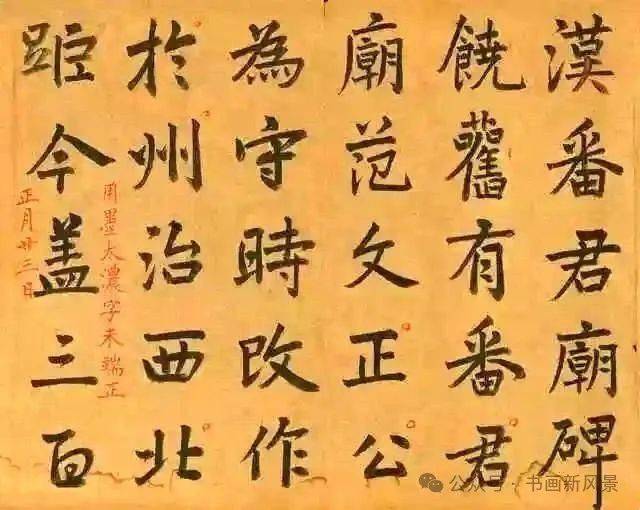 漢番君廟碑
饒舊有番君
廟范文正公
為守時改作
於州治西北
距今盖三百
用墨太濃字未端正
正月廿三日
公众号 · 书画新风景